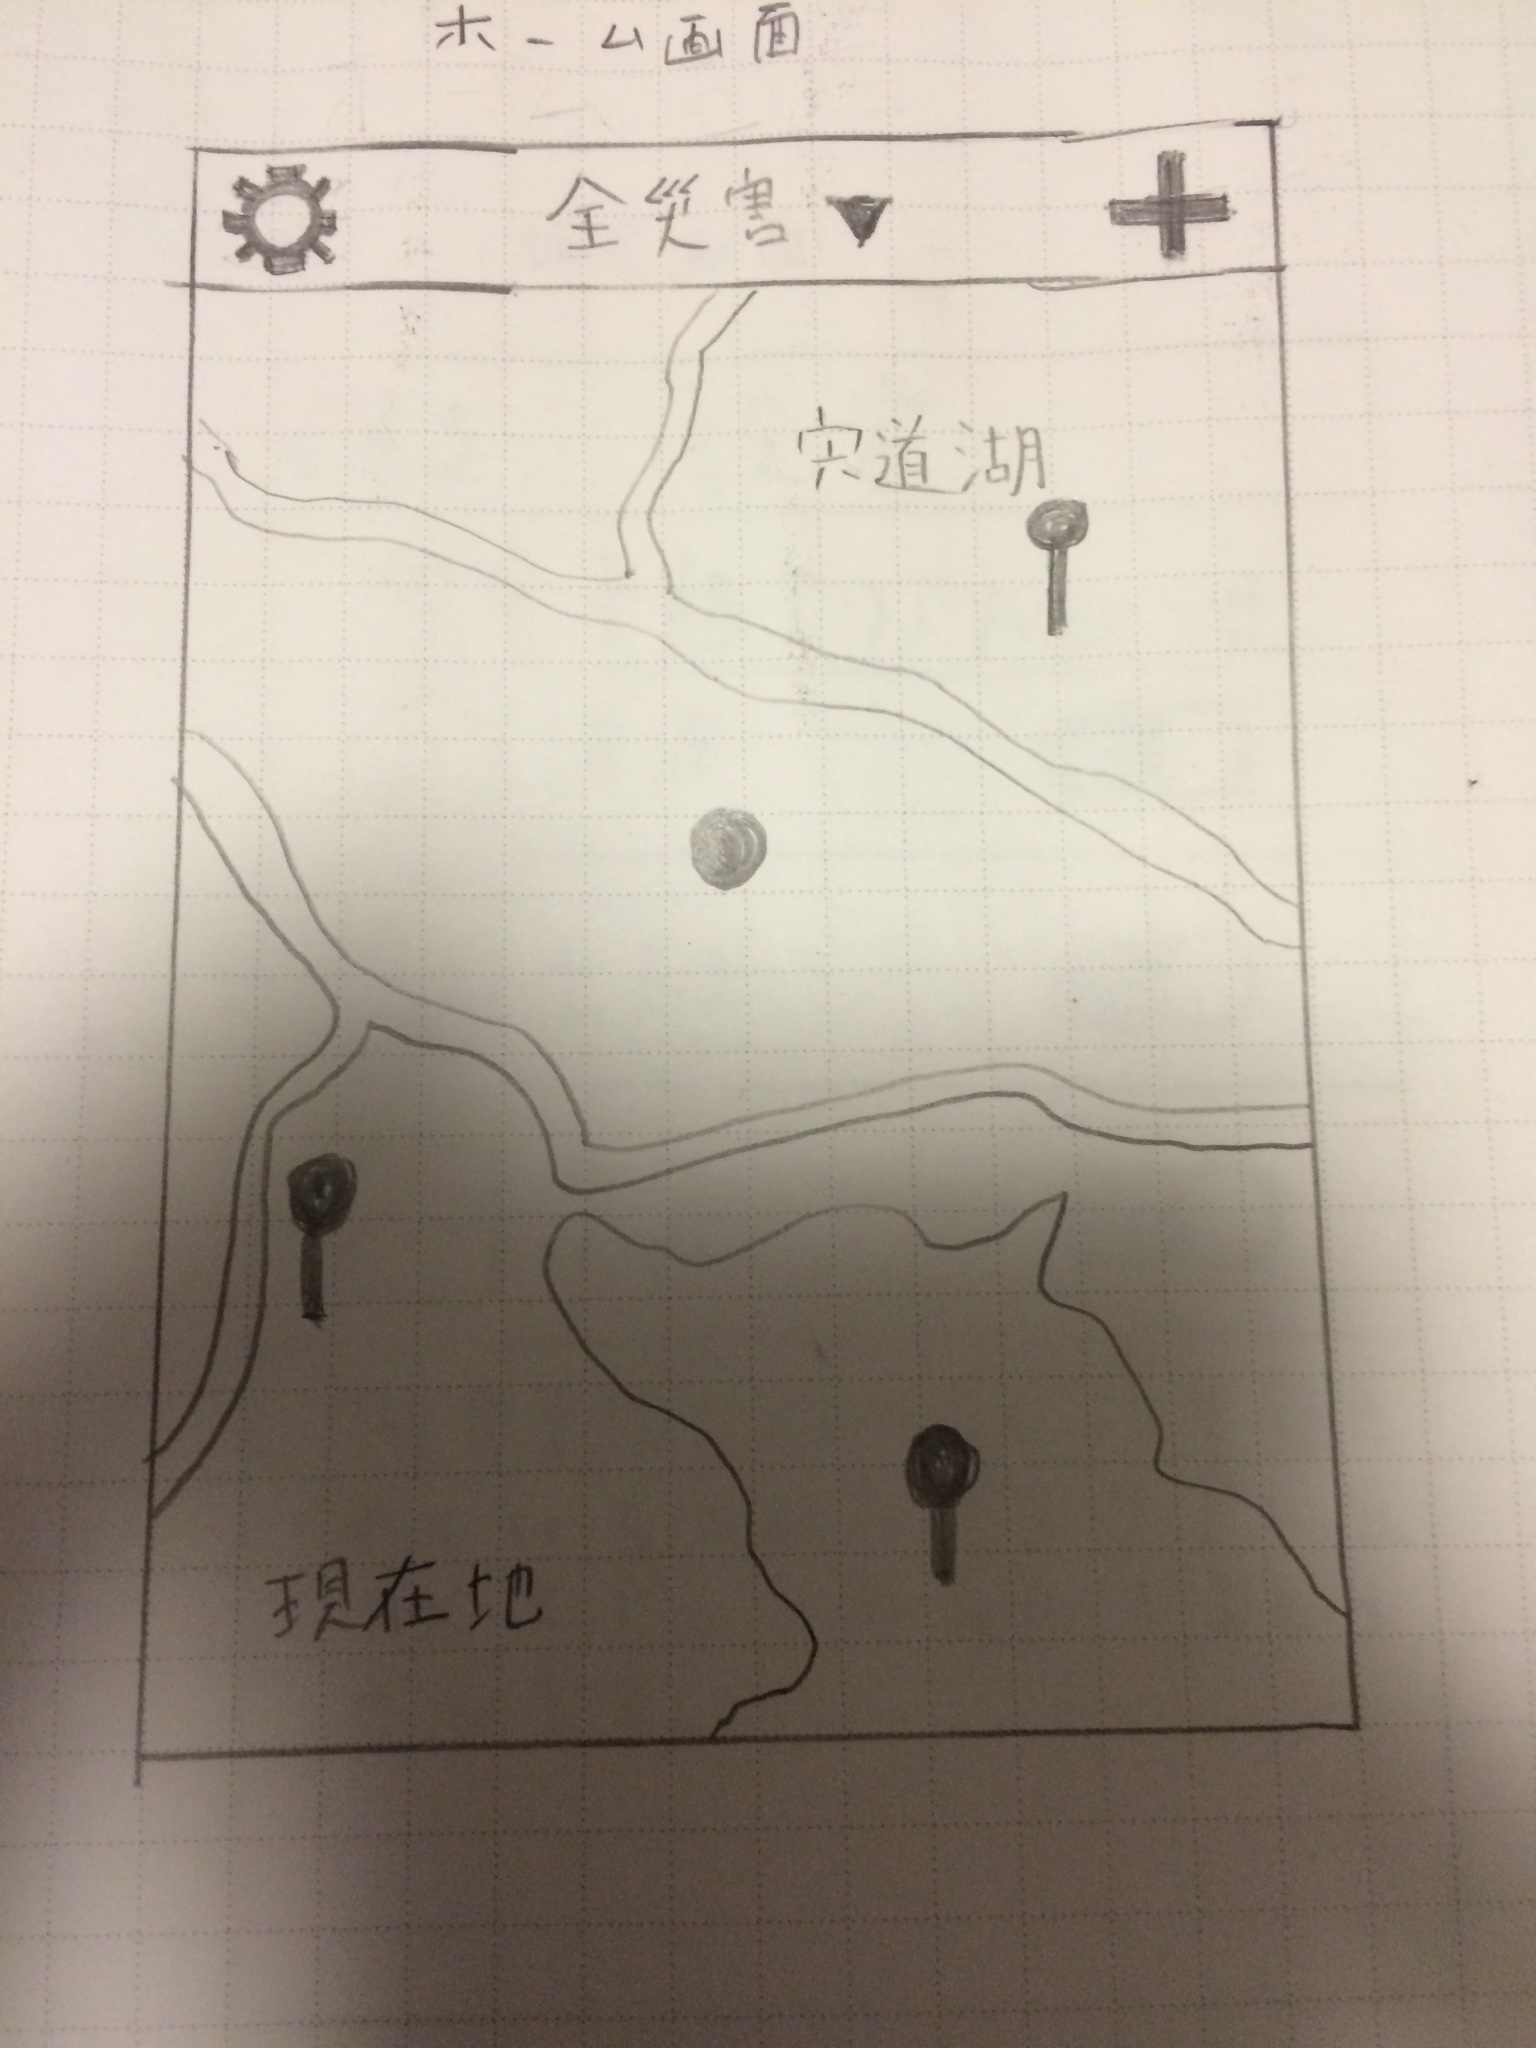 ホーム画面
全災害▼
宍道湖
現在地